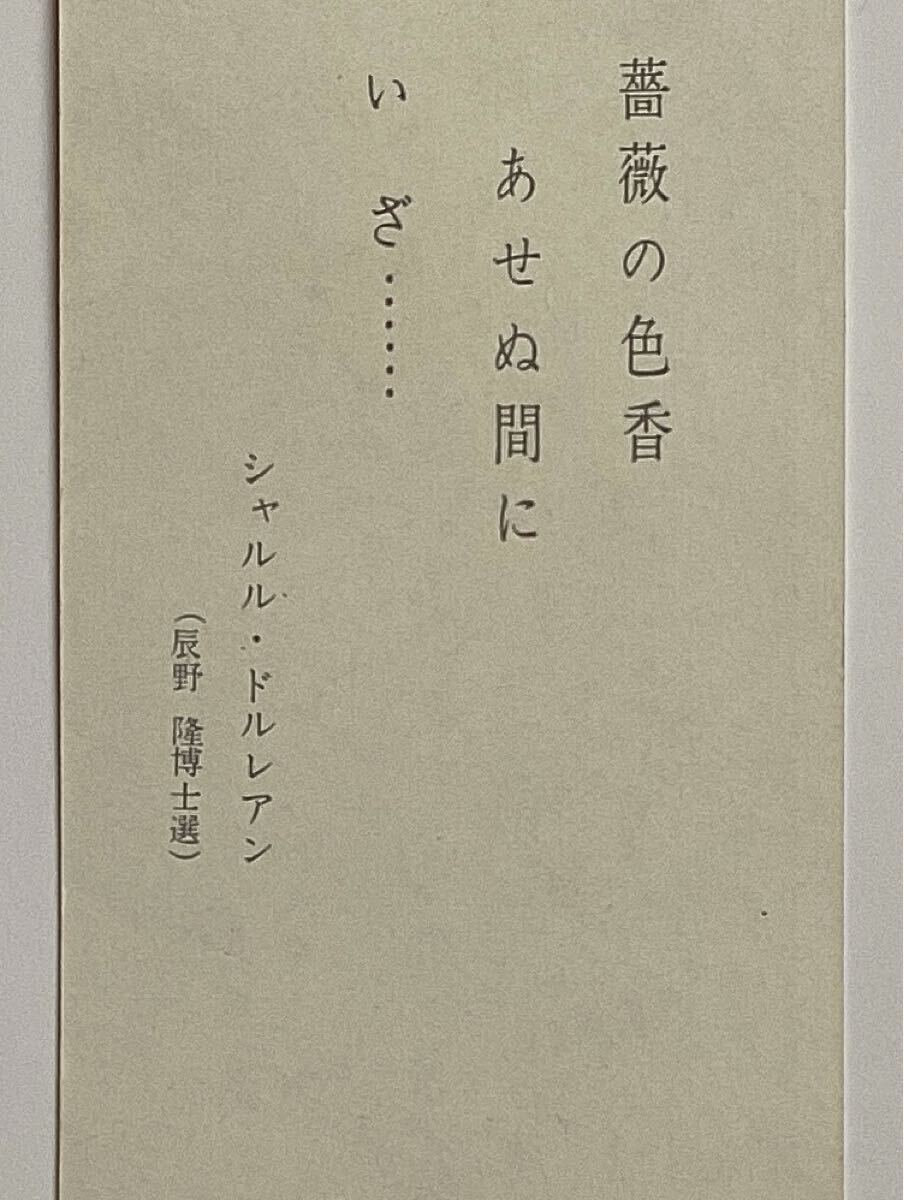 薔薇の色香
あせぬ間に
いざ……
シャルル・ドルレアン
（辰野 隆博士選）